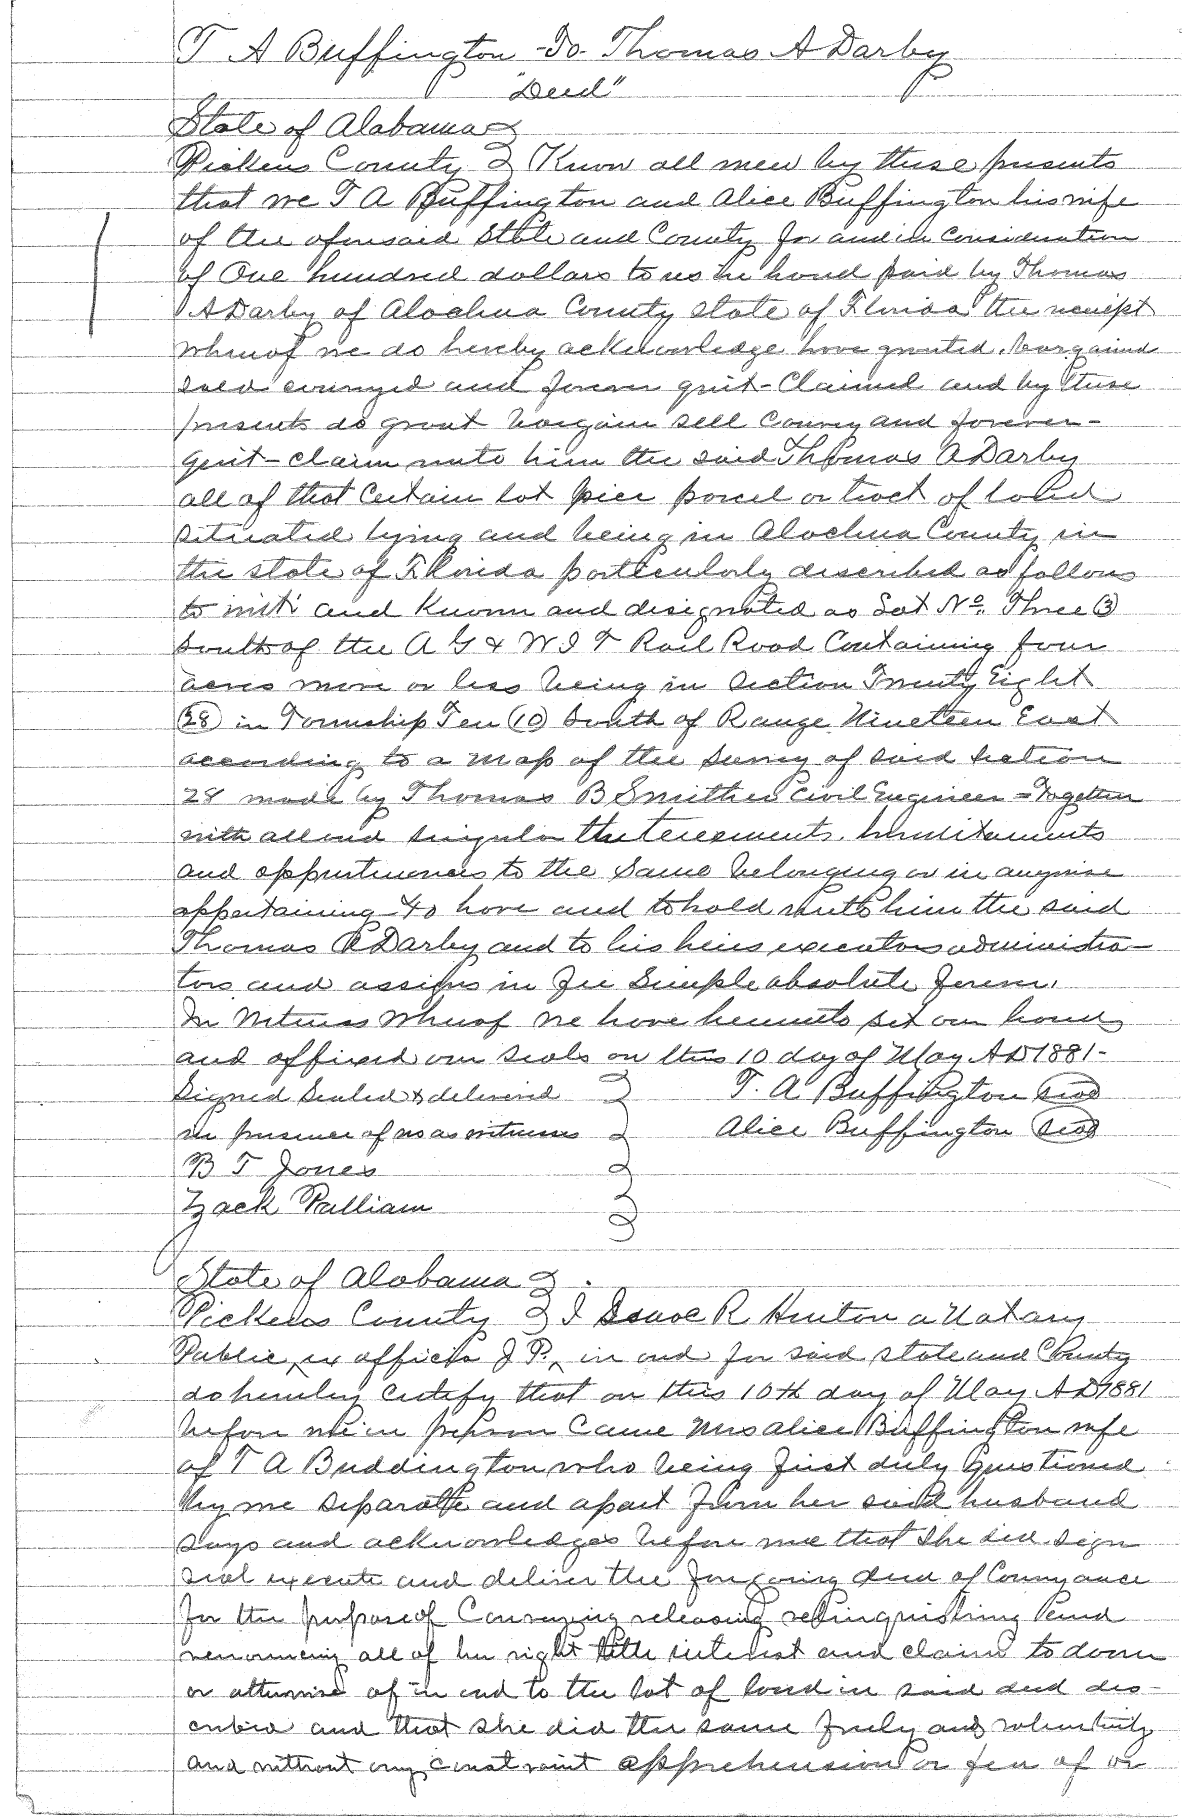 T A Buffington -To- Thomas A Darby
"Deed"
State of Alabama
Pickens County Know all men by these presents
that we T A Buffington and Alice Buffington his wife
of the aforesaid State and County for and in consideration
of One hundred dollars to us in hand paid by Thomas
A Darby of Alachua County State of Florida the receipt
whereof we do hereby acknowledge have granted, bargained
sold conveyed and forever quit-Claimed and by these
presents do grant bargain sell convey and forever-
quit-claim unto him the said Thomas A Darby
all of that Certain lot piece parcel or tract of land
situated lying and being in Alachua County in
the state of Florida particularly described as follows
to wit: and Known and designated as Lot No. Three (3)
South of the A G & W I T Rail Road Containing four
acres more or less being in Section Twenty Eight
(28) in Township Ten (10) South of Range Nineteen East
according to a map of the survey of said section
28 made by Thomas B Smither Civil Engineer = Together
with all and singular the tenements. hereditaments
and appurtenances to the same belonging or in anywise
appertaining to have and to hold unto him the said
Thomas A Darby and to his heirs executors administra-
tors and assigns in fee Simple absolute forever.
In Witness Whereof we have hereunto set our hands
and affixed our seals on this 10 day of May AD 1881-
Signed Sealed & delivered T. A Buffington Seal
in presence of us as witnesses Alice Buffington Seal
B T Jones
Zack Pulliam
State of Alabama
Pickens County I Isaac R Hinton a Notary
Public, ex officio J P., in and for said state and County
do hereby certify that on this 10th day of May AD 1881
before me in person Came Mrs Alice Buffington wife
of T A Buddington who being first duly questioned
by me separate and apart from her said husband
says and acknowledges before me that She did sign
seal execute and deliver the foregoing deed of Conveyance
for the purpose of Conveying releasing relinquishing and
renouncing all of her right title interest and claim to dower
or otherwise of in and to the lot of land in said deed des-
cribed and that she did the same freely and voluntarily
and without any constraint apprehension or fear of or